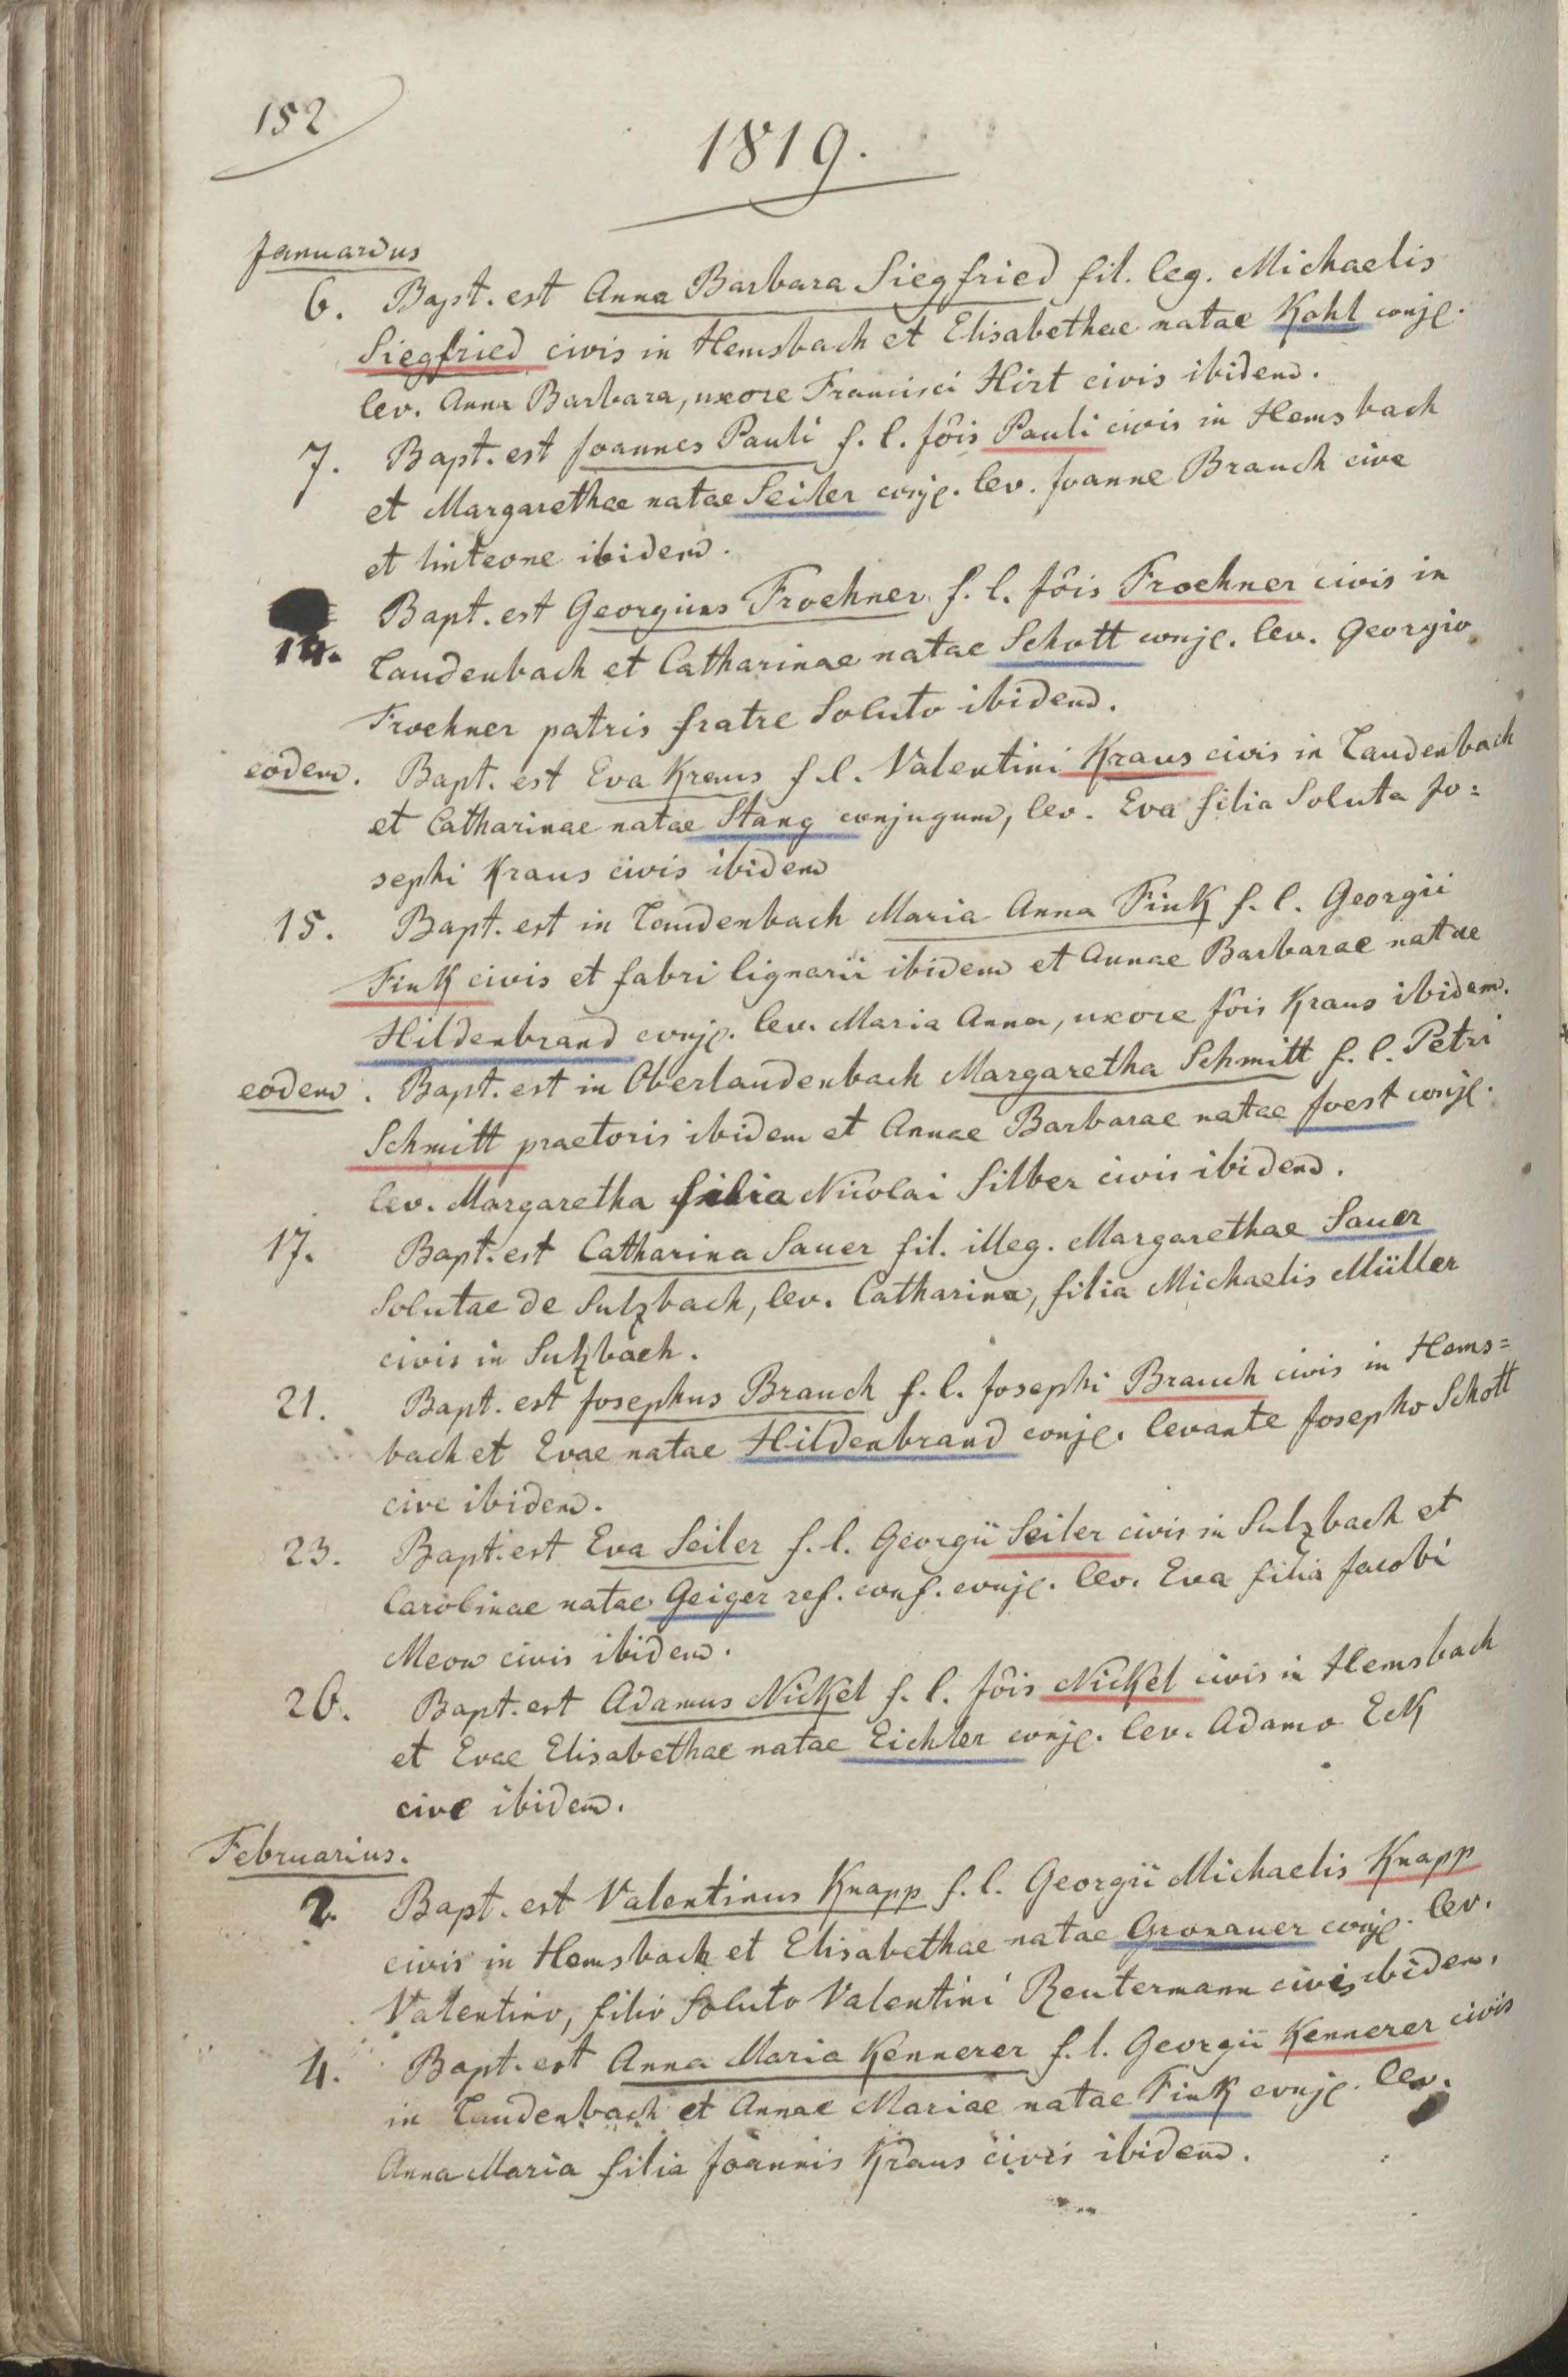 152
1819.
Januarius
6. Bapt. est Anna Barbara Siegfried fil. leg. Michaelis
Siegfried civis in Hemsbach et Elisabethae natae Kohl conjg.
lev. Anna Barbara, uxore Francisci Hirt civis ibidem.
7. Bapt. est Joannes Pauli f. l. Jôis Pauli civis in Hemsbach
et Margarethae natae Seiler conjg. lev. Joanne Brauch cive
et linteone ibidem.
14. Bapt. est Georgius Froehner f. l. Jôis Froehner civis in
Laudenbach et Catharinae natae Schott conjg. lev. Georgio
Froehner patris fratre Soluto ibidem.
eodem. Bapt. est Eva Kraus f. l. Valentini Kraus civis in Laudenbach
et Catharinae natae Stang conjugum, lev. Eva filia Soluta Jo=
sephi Kraus civis ibidem
15. Bapt. est in Laudenbach Maria Anna Fink f. l. Georgii
Fink civis et fabri lignarii ibidem et Annae Barbarae natae
Hildenbrand conjg. lev. Maria Anna, uxore Jôis Kraus ibidem.
eodem. Bapt. est in Oberlaudenbach Margaretha Schmitt f. l. Petri
Schmitt praetoris ibidem et Annae Barbarae natae Joest conjg.
lev. Margaretha filia Nicolai Silber civis ibidem.
17. Bapt. est Catharina Sauer fil. illeg. Margarethae Sauer
Solutae de Sulzbach, lev. Catharina, filia Michaelis Müller
civis in Sulzbach.
21. Bapt. est Josephus Brauch f. l. Josephi Brauch civis in Hems=
bach et Evae natae Hildenbrand conjg. levante Josepho Schott
cive ibidem.
23. Bapt. est Eva Seiler f. l. Georgii Seiler civis in Sulzbach et
Carolinae natae Geiger ref. conf. conjg. lev. Eva filia Jacobi
civis ibidem.
26. Bapt. est Adamus Nickel f. l. Jôis Nickel civis in Hemsbach
et Evae Elisabethae natae Eichler conjg. lev. Adamo Eck
cive ibidem.
Februarius.
2. Bapt. est Valentinus Knapp f. l. Georgii Michaelis Knapp
civis in Hemsbach et Elisabethae natae Gronauer conjg. lev.
Valentino, filio Soluto Valentini Reutermann civis ibidem.
4. Bapt. est Anna Maria Kennerer f. l. Georgii Kennerer civis
in Laudenbach et Annae Mariae natae Fink conjg. lev.
Anna Maria filia Joannis Kraus civis ibidem.